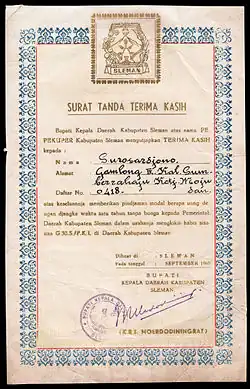 SLEMAN
SURAT TANDA TERIMA KASIH
Bupati Kepala Daerah Kabupaten Sleman atas nama PE.
PEKUPER Kabupaten Sleman mengutjapkan TERIMA KASIH
kepada :
Nama : Surosardjono.
Alamat : Gamlong
Daftar No. : 0418.- dan
atas keselannja memberikan pindjaman modal berupa uang de
ngan djangka waktu satu tahun tanpa bunga kepada Pemerintah
Daerah Kabupaten Sleman dalam usahanja mengkikis habis sisa
sisa G.30.S/P.K.I. di Daerah Kabupaten Sleman
Dibuat di : SLEMAN
Pada tanggal : SEPTEMBER
BUPATI
KEPALA DAERAH KABUPATEN
SLEMAN
(K.R.T. MURDODININGRAT)